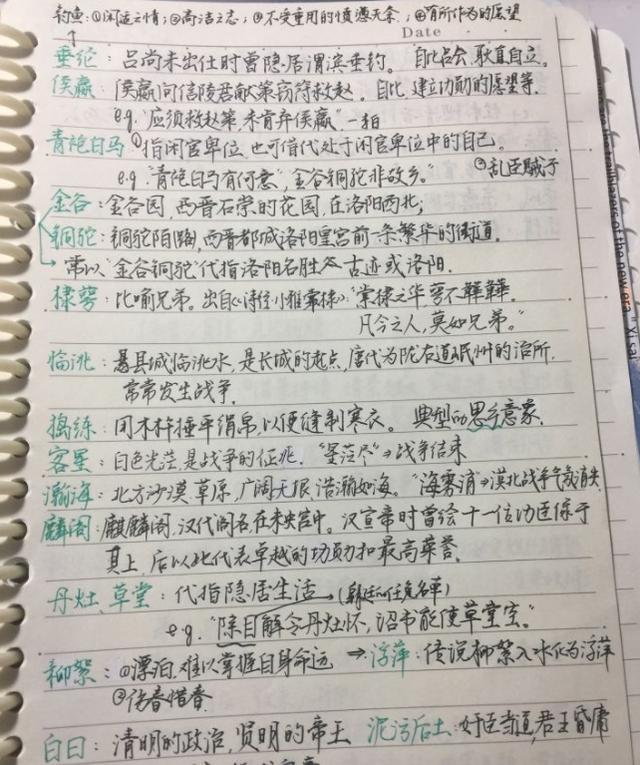 钓鱼:①闲适之情;②高洁之志;③不受重用的愤懑无奈;④有所作为的愿望
Date
垂纶:吕尚未出仕时曾隐居渭滨垂钓。自比吕尚,耿直自立。
侯嬴:侯嬴向信陵君献策窃符救赵。自比,建立功勋的愿望等.
e.g."应须救赵策,未肯弃侯嬴".一柏
青袍白马①指闲官卑位,也可借代处于闲官卑位中的自己。
e.g."青袍白马有何意",金谷铜驼非故乡。" ②乱臣贼子
金谷:金谷园,西晋石崇的花园,在洛阳西北;
铜驼:铜驼陌路,西晋都城洛阳皇宫前一条繁华的街道.
常以"金谷铜驼"代指洛阳名胜古迹或洛阳.
棣萼:比喻兄弟。出自《诗经·小雅·棠棣》:"棠棣之华,萼不韡韡.
凡今之人,莫如兄弟。"
临洮:县城临洮水,是长城的起点,唐代为陇右道岷州的治所.
常常发生战争.
捣练:用木杵捶平绢帛,以便缝制寒衣。典型的思乡意象.
客星:白色光芒,是战争的征兆."星芒尽"→战争结束
瀚海:北方沙漠、草原,广阔无垠,浩瀚如海。"海雾消"→漠北战争气氛消失
麟阁:麒麟阁,汉代阁名,在未央宫中。汉宣帝时曾绘十一位功臣像于
其上,后以此代表卓越的功勋和最高荣誉.
丹灶、草堂:代指隐居生活→(朝廷任免名单)
e.g."除目解令丹灶怀,诏书能使草堂空。"
柳絮:①漂泊,难以掌握自身命运→浮萍:传说柳絮入水化为浮萍
②伤春惜春
白日:清明的政治,贤明的帝王 泥污后土:奸臣当道,君王昏庸
of the new era." Xi sai